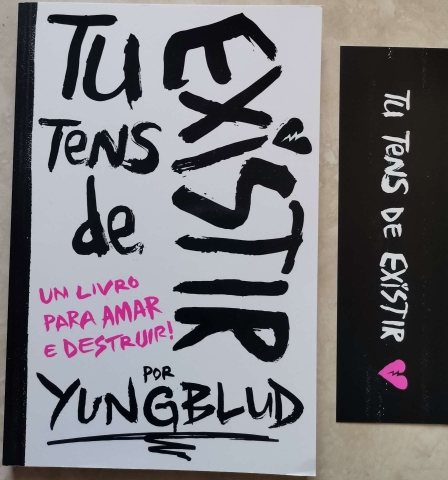 TU
TENS
de
EXISTIR
UM LIVRO
PARA AMAR
E DESTRUIR!
POR
YUNGBLUD
TU TENS DE EXISTIR